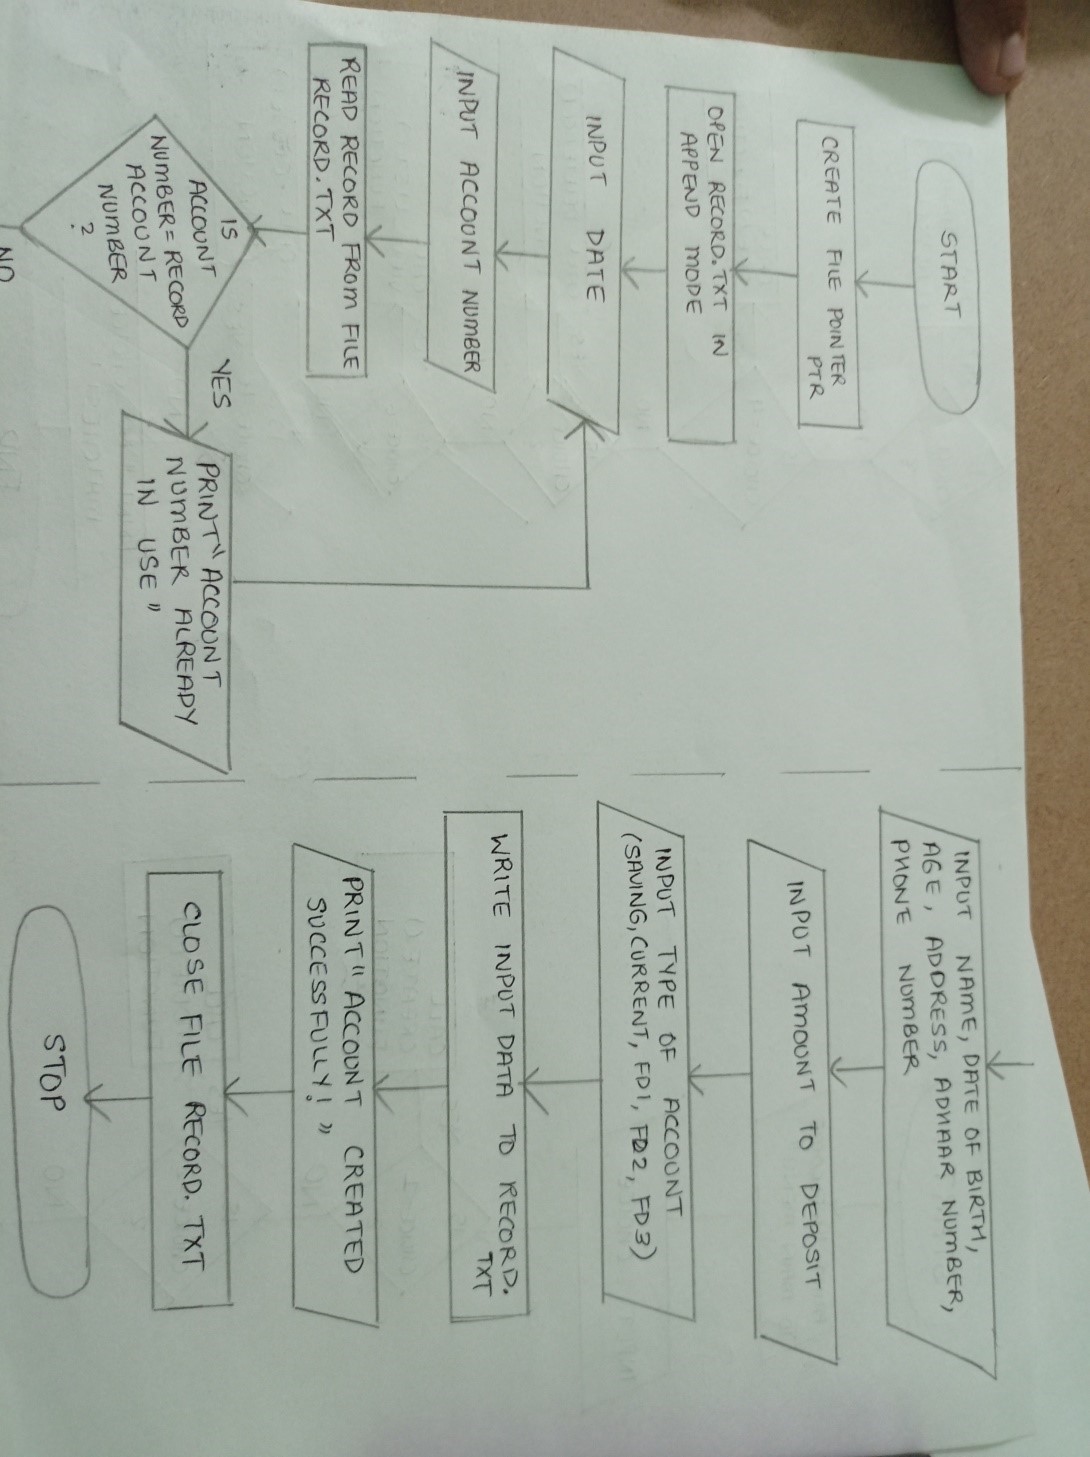 START
CREATE FILE POINTER
PTR
OPEN RECORD.TXT IN
APPEND MODE
INPUT DATE
INPUT ACCOUNT NUMBER
READ RECORD FROM FILE
RECORD.TXT
IS
ACCOUNT
NUMBER = RECORD
ACCOUNT
NUMBER
?
YES
PRINT "ACCOUNT
NUMBER ALREADY
IN USE"
NO
INPUT NAME, DATE OF BIRTH,
AGE, ADDRESS, ADHAAR NUMBER,
PHONE NUMBER
INPUT AMOUNT TO DEPOSIT
INPUT TYPE OF ACCOUNT
(SAVING, CURRENT, FD1, FD2, FD3)
WRITE INPUT DATA TO RECORD.
TXT
PRINT " ACCOUNT CREATED
SUCCESSFULLY! "
CLOSE FILE RECORD. TXT
STOP